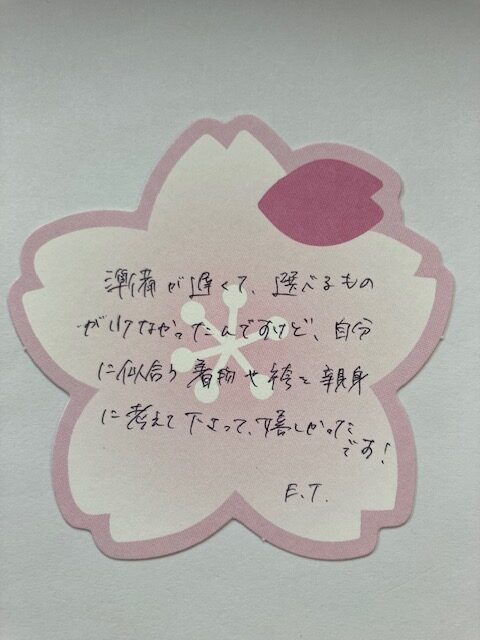 準備が遅くて、選べるもの
が少なかったんですけど、自分
に似合う着物や袴を親身
に考えて下さって、嬉しかった
です!
E.T.